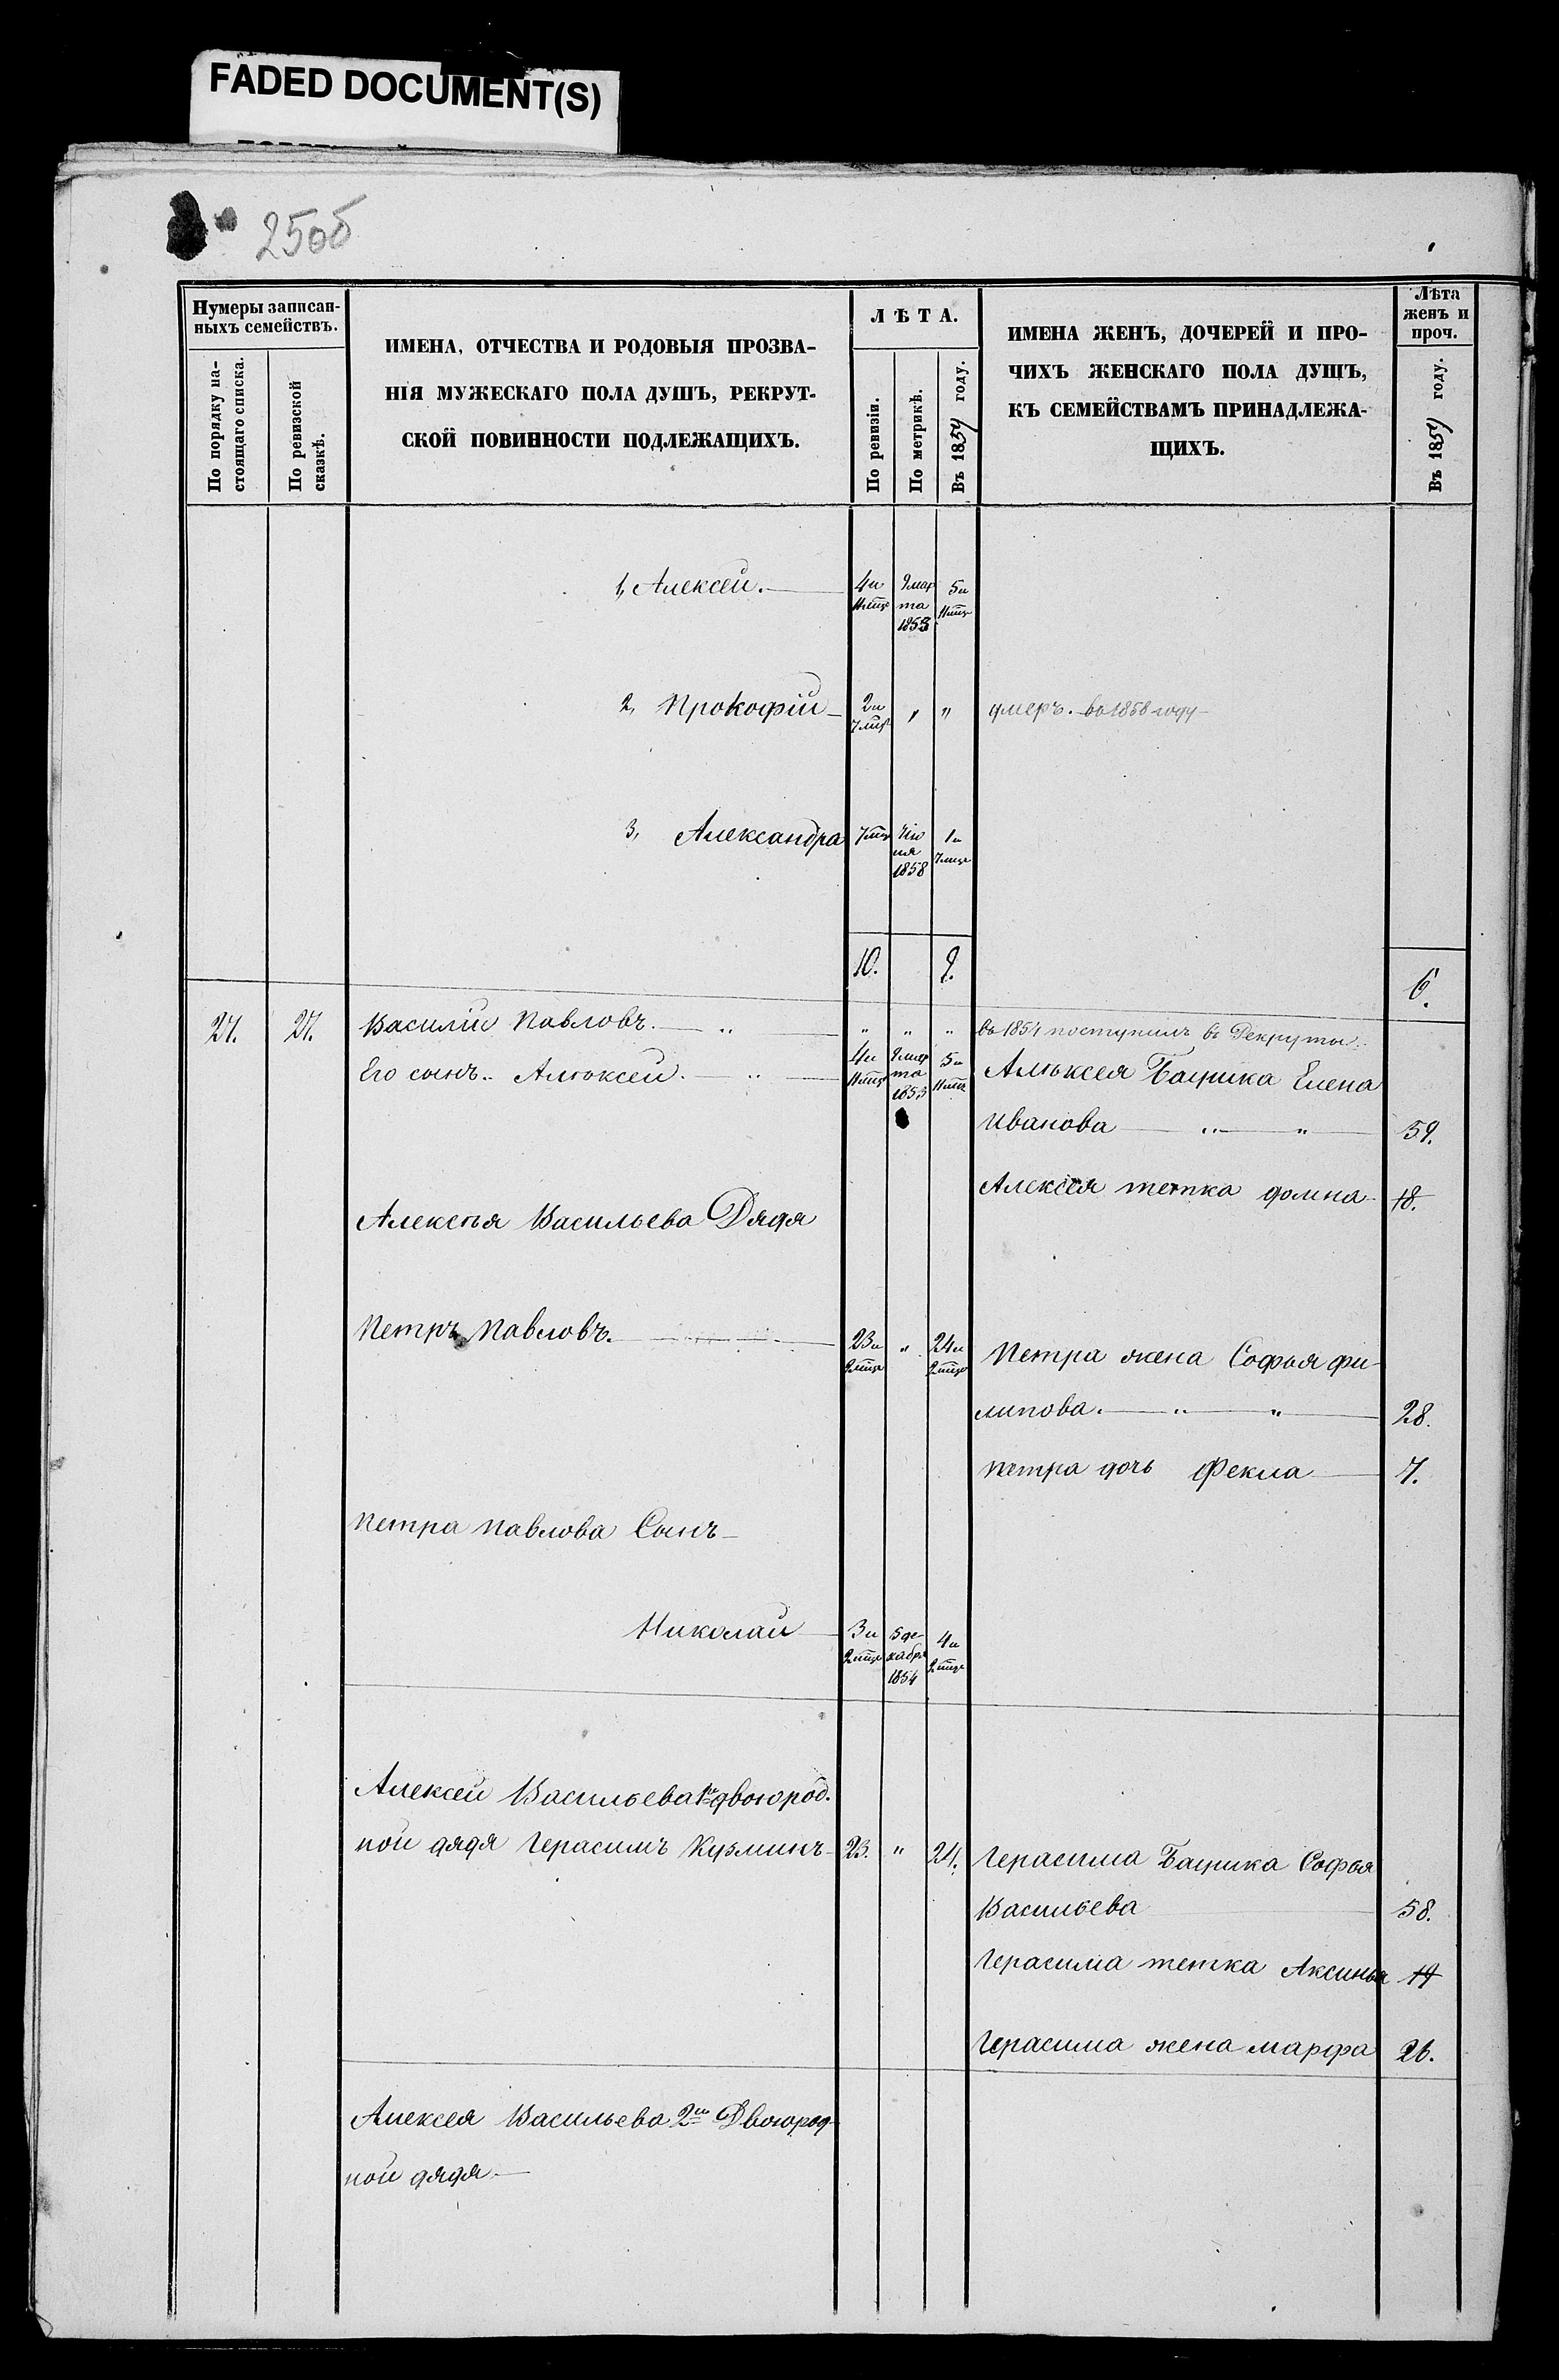 FADED DOCUMENT(S)
25об
Нумеры записан-
ныхъ семействъ.
По порядку на-
стоящаго списка.
По ревизской
сказкѣ.
ИМЕНА, ОТЧЕСТВА И РОДОВЫЯ ПРОЗВА-
НІЯ МУЖЕСКАГО ПОЛА ДУШЪ, РЕКРУТ-
СКОЙ ПОВИННОСТИ ПОДЛЕЖАЩИХЪ.
ЛѢТА.
По ревизіи.
По метрикѣ.
Въ 1859 году.
ИМЕНА ЖЕНЪ, ДОЧЕРЕЙ И ПРО-
ЧИХЪ ЖЕНСКАГО ПОЛА ДУШЪ,
КЪ СЕМЕЙСТВАМЪ ПРИНАДЛЕЖА-
ЩИХЪ.
Лѣта
женъ и
проч.
Въ 1859 году.
1, Алексей. 4и 11мце 9 мар та 1853 5и 11мце
2, Прокофій 2и 7мце " " умеръ. въ 1858 году
3, Александра 7мце 1858 1и 7мце
10. 9. 6.
27. 27. Василій Павловъ. " " " " въ 1854 поступилъ въ Рекруты.
Его сынъ.. Алѣксей. 4и 11мце 9 мар та 1853 5и 11мце Алѣксея Бацика Елена
Иванова 59.
Алексѣя тетка домна 18.
Алексѣя Васильева Дядя
Петръ Павловъ. 23и 2мце " 24и 2мце Петра жена Софья фи-
липова. 28.
петра дочь Фекла 7.
петра павлова Сынъ
Николай 3и 2мце 5 де- кабря 1854 4и 2мце
Алексей Васильева 1й двоюрод.
ной дядя Герасимъ Кузминъ 23. " 24. Герасима Бацика Софья
Васильева 58.
Герасима тетка Аксинья 19
Герасима жена марфа 26.
Алексея Васильева 2й Двоюрод-
ной дядя